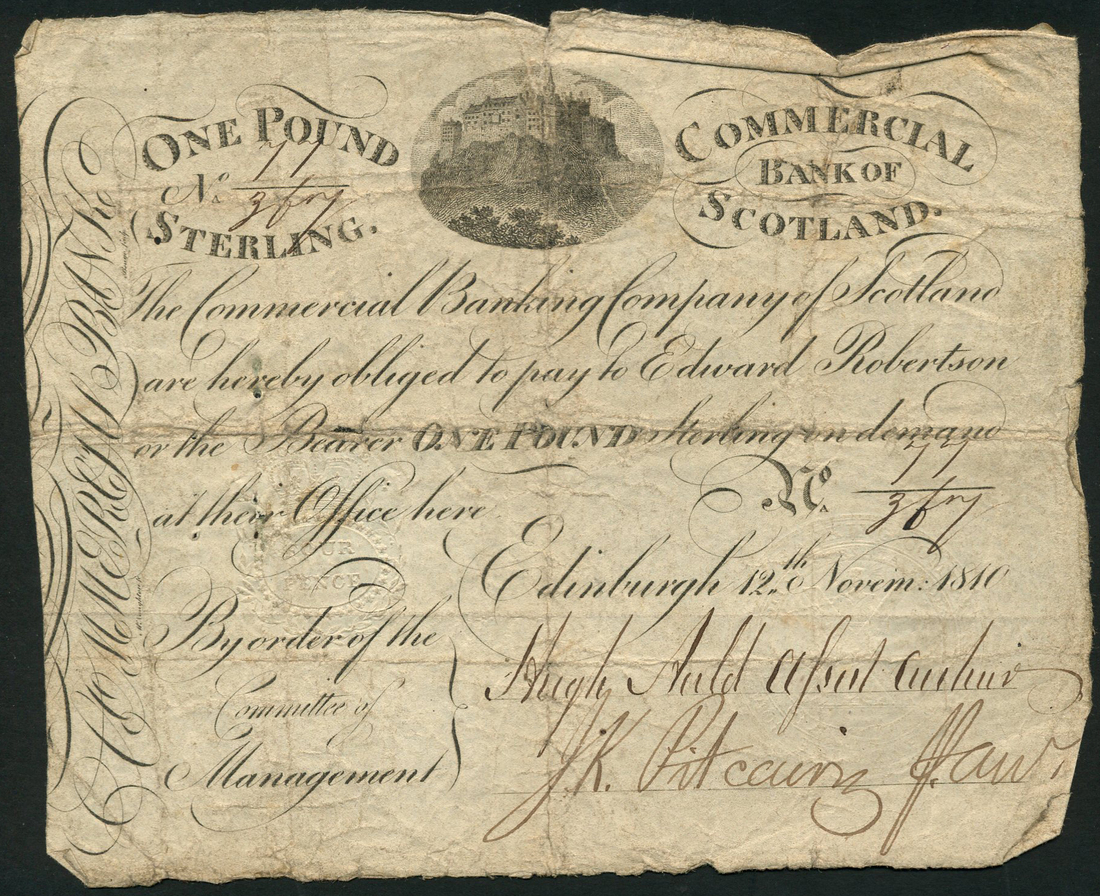 ONE POUND
No. 77
STERLING.
COMMERCIAL
BANK OF
SCOTLAND.
COMMERCIAL BANK
The Commercial Banking Company of Scotland
are hereby obliged to pay to Edward Robertson
or the Bearer ONE POUND Sterling on demand
at their Office here
No. 77
FOUR
PENCE
Edinburgh 12th Novem: 1810
By order of the
Committee of
Management
Hugh Auld Assnt Cashier
J.K. Pitcairn